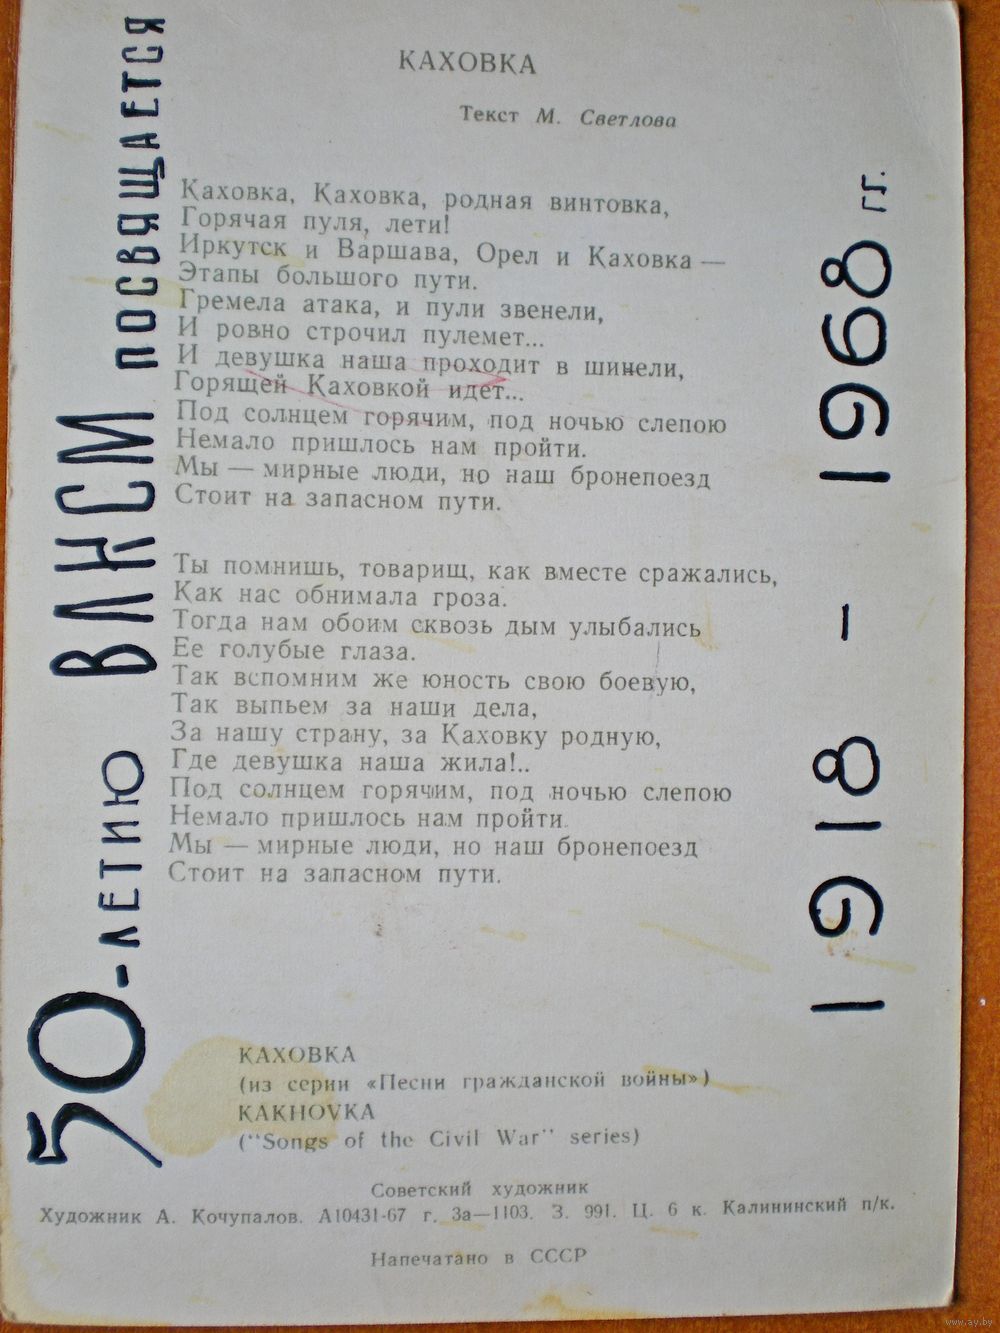 КАХОВКА
Текст М. Светлова
Каховка, Каховка, родная винтовка,
Горячая пуля, лети!
Иркутск и Варшава, Орел и Каховка —
Этапы большого пути.
Гремела атака, и пули звенели,
И ровно строчил пулемет...
И девушка наша проходит в шинели,
Горящей Каховкой идет...
Под солнцем горячим, под ночью слепою
Немало пришлось нам пройти.
Мы — мирные люди, но наш бронепоезд
Стоит на запасном пути.
Ты помнишь, товарищ, как вместе сражались,
Как нас обнимала гроза.
Тогда нам обоим сквозь дым улыбались
Ее голубые глаза.
Так вспомним же юность свою боевую,
Так выпьем за наши дела,
За нашу страну, за Каховку родную,
Где девушка наша жила!..
Под солнцем горячим, под ночью слепою
Немало пришлось нам пройти.
Мы — мирные люди, но наш бронепоезд
Стоит на запасном пути.
КАХОВКА
(из серии «Песни гражданской войны»)
KAKHOVKA
("Songs of the Civil War" series)
Советский художник
Художник А. Кочупалов. А10431-67 г. За—1103. З. 991. Ц. 6 к. Калининский п/к.
Напечатано в СССР
50-ЛЕТИЮ ВЛКСМ ПОСВЯЩАЕТСЯ
1918 - 1968 гг.
www.ay.by